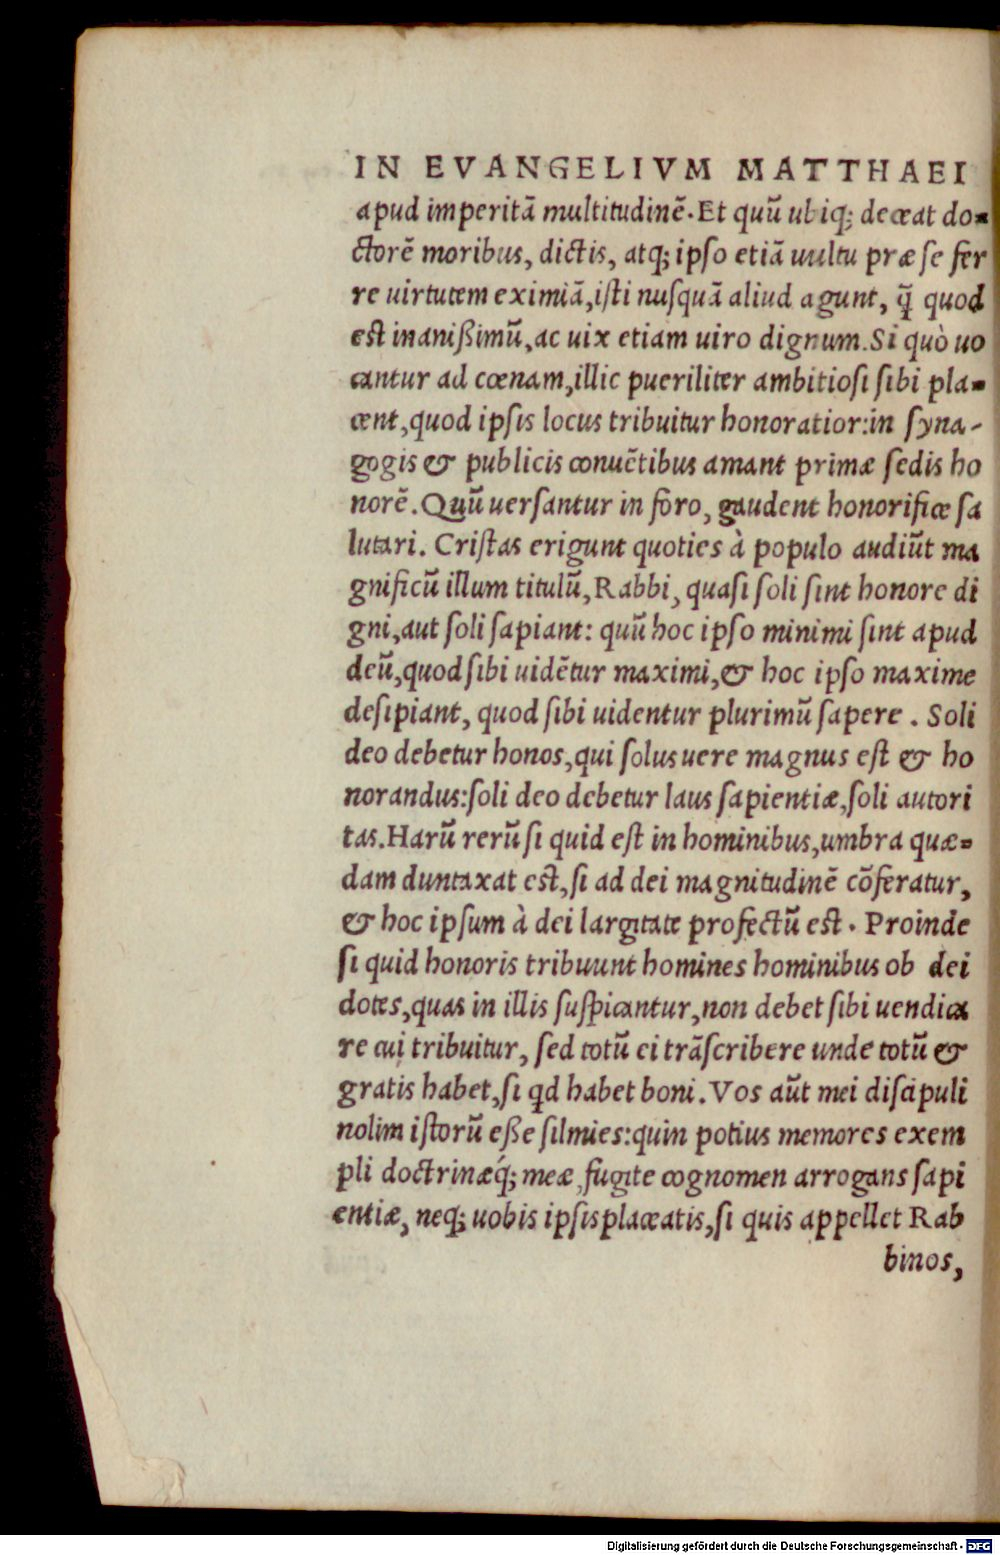 IN EVANGELIVM MATTHAEI
apud imperitā multitudinē. Et quū ubiq; deceat do-
ctorē moribus, dictis, atq; ipso etiā uultu præ se fer
re uirtutem eximiā, isti nusquā aliud agunt, q̄ quod
est inanißimū, ac uix etiam uiro dignum. Si quò uo
cantur ad cœnam, illic pueriliter ambitiosi sibi pla-
cent, quod ipsis locus tribuitur honoratior: in syna-
gogis & publicis conuētibus amant primæ sedis ho
norē. Quū uersantur in foro, gaudent honorifice sa
lutari. Cristas erigunt quoties à populo audiūt ma
gnificū illum titulū, Rabbi, quasi soli sint honore di
gni, aut soli sapiant: quū hoc ipso minimi sint apud
deū, quod sibi uidētur maximi, & hoc ipso maxime
desipiant, quod sibi uidentur plurimū sapere. Soli
deo debetur honos, qui solus uere magnus est & ho
norandus: soli deo debetur laus sapientiæ, soli autori
tas. Harū rerū si quid est in hominibus, umbra quæ-
dam duntaxat est, si ad dei magnitudinē cōferatur,
& hoc ipsum à dei largitate profectū est. Proinde
si quid honoris tribuunt homines hominibus ob dei
dotes, quas in illis suspicantur, non debet sibi uendica
re cui tribuitur, sed totū ei trāscribere unde totū &
gratis habet, si qd habet boni. Vos aūt mei discipuli
nolim istorū eße silmies: quin potius memores exem
pli doctrinæq́; meæ, fugite cognomen arrogans sapi
entiæ, neq; uobis ipsis placeatis, si quis appellet Rab
binos,
Digitalisierung gefördert durch die Deutsche Forschungsgemeinschaft - DFG